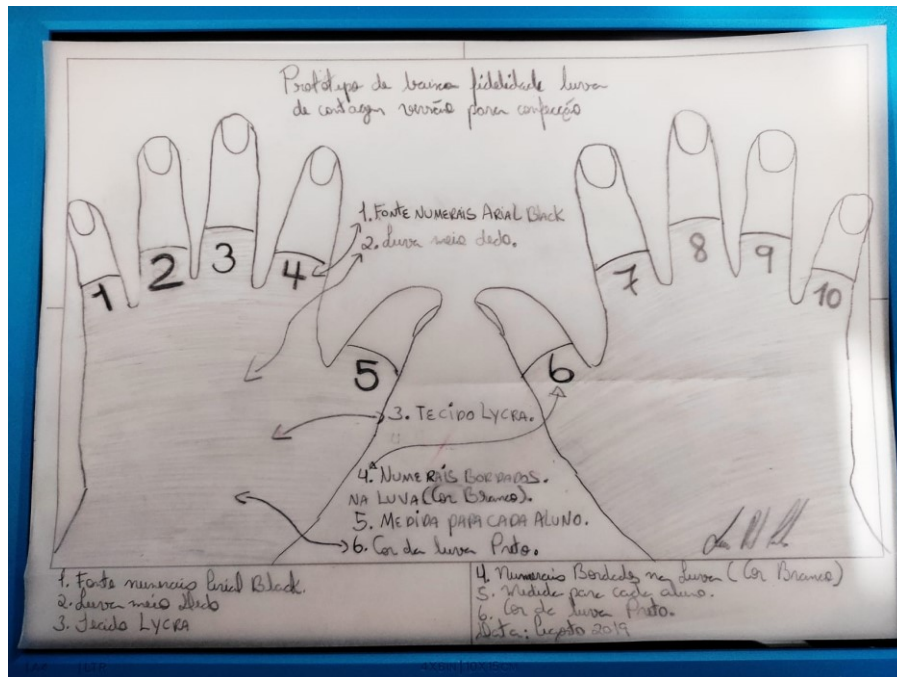 Protótipo de baixa fidelidade luva
de contagem versão para confecção
1 2 3 4
7 8 9 10
1. FONTE NUMERAIS ARIAL BLACK
2. Luva meio dedo.
5 6
3. TECIDO LYCRA.
4. NUMERAIS BORDADOS.
NA LUVA (Cor Branco).
5. MEDIDA PARA CADA ALUNO.
6. Cor da luva Preto.
1. Fonte numerais Arial Black.
2. Luva meio dedo
3. Tecido LYCRA
4. Numerais Bordados na Luva (Cor Branco)
5. Medida para cada aluno.
6. Cor da luva Preto.
Data: Agosto 2019